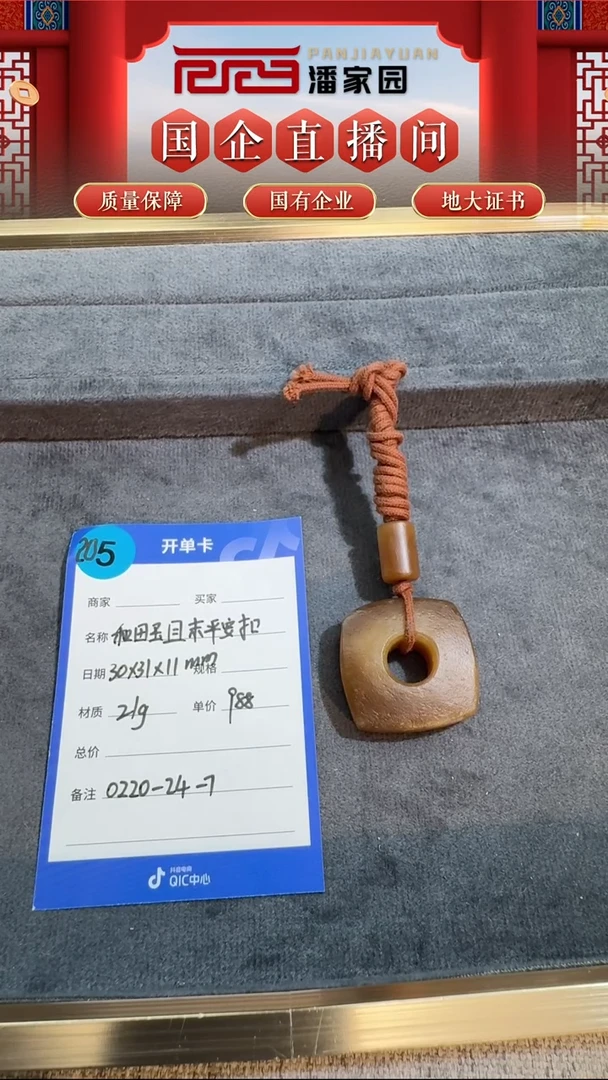 PANJIAYUAN
潘家园
国企直播间
质量保障 国有企业 地大证书
205 开单卡
商家 买家
名称 和田玉目末平安扣
日期 30X31X11mm 规格
材质 21g 单价 988
总价
备注 0220-24-7
抖音电商
QIC中心